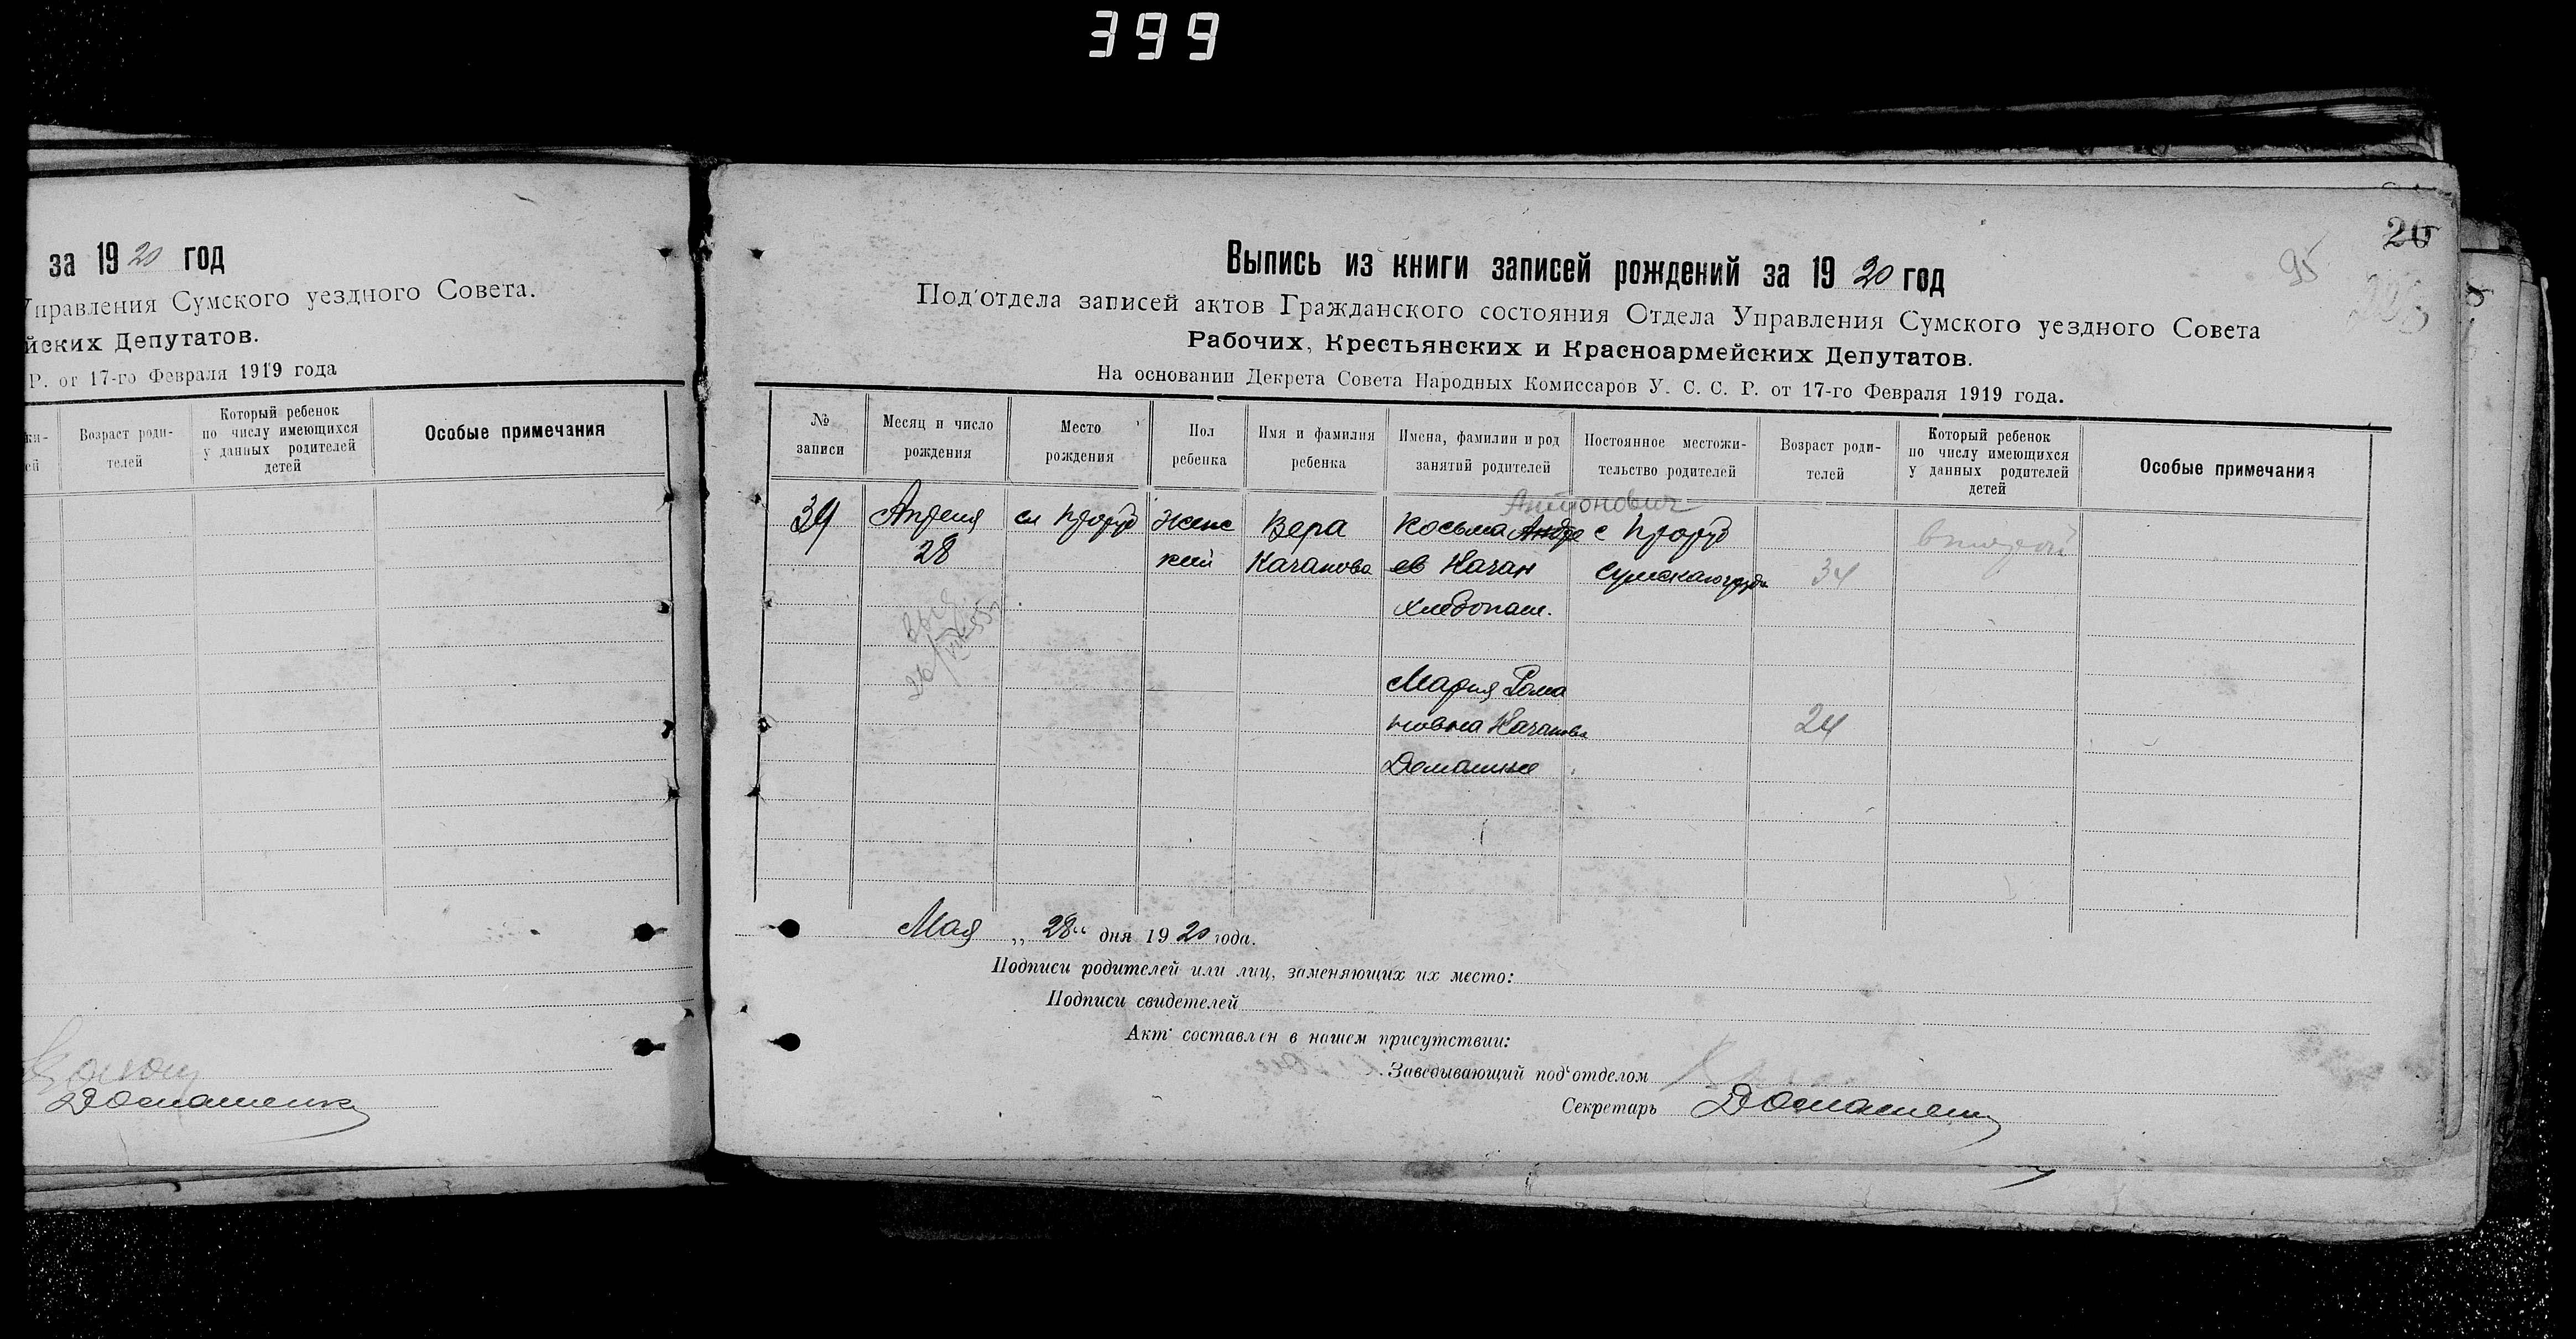 399
за 1920 год
Управления Сумского уездного Совета.
йских Депутатов.
Р. от 17-го Февраля 1919 года
жи-
ей
Возраст роди-
телей
Который ребенок
по числу имеющихся
у данных родителей
детей
Особые примечания
Домашенко
20
95
Выпись из книги записей рождений за 1920 год
Под'отдела записей актов Гражданского состояния Отдела Управления Сумского уездного Совета
Рабочих, Крестьянских и Красноармейских Депутатов.
На основании Декрета Совета Народных Комиссаров У. С. С. Р. от 17-го Февраля 1919 года.
№
записи
Месяц и число
рождения
Место
рождения
Пол
ребенка
Имя и фамилия
ребенка
Имена, фамилии и род
занятий родителей
Постоянное местожи-
тельство родителей
Возраст роди-
телей
Который ребенок
по числу имеющихся
у данных родителей
детей
Особые примечания
34
Апреля
28
сл Проруб
Женс
кий
Вера
Качанова
Антонович
Косьма Андре
ев Качан
хлебопаш.
Мария Рома
новна Качанова
Домашние
с Проруб
Сумского уезда
34
24
второй
Мая „28“ дня 1920 года.
Подписи родителей или лиц, заменяющих их место:
Подписи свидетелей
Акт составлен в нашем присутствии:
Заведывающий под'отделом
Секретарь Домашенко